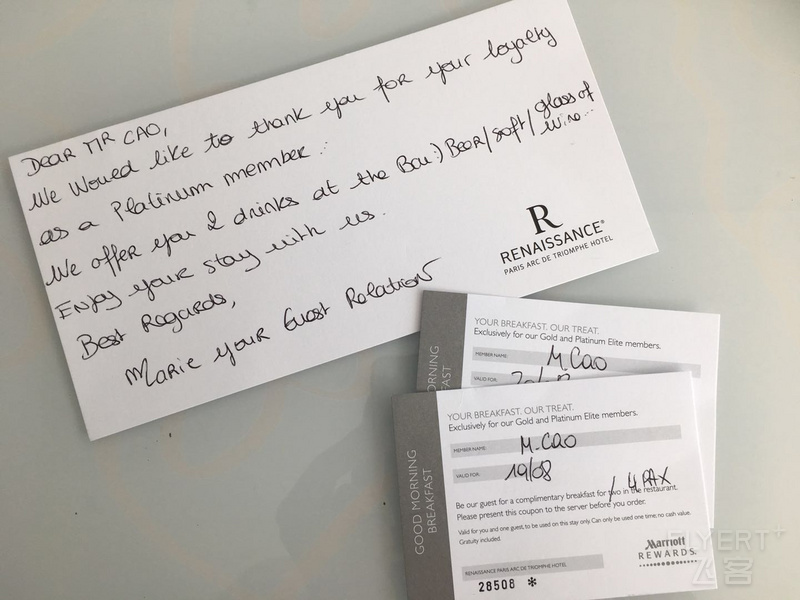 DEAR MR CAO,
We Would like to thank you for your loyalty
as a Platinum member.
We offer you 2 drinks at the Bar :) Beer/soft/glass of
wine...
Enjoy your stay with us.
Best Regards,
Marie your Guest Relation
R
RENAISSANCE®
PARIS ARC DE TRIOMPHE HOTEL
YOUR BREAKFAST. OUR TREAT.
Exclusively for our Gold and Platinum Elite members.
MEMBER NAME: M. CAO
VALID FOR:
GOOD MORNING
BREAKFAST
YOUR BREAKFAST. OUR TREAT.
Exclusively for our Gold and Platinum Elite members.
MEMBER NAME: M. CAO
VALID FOR: 19/08
/ 4 PAX
Be our guest for a complimentary breakfast for two in the restaurant.
Please present this coupon to the server before you order.
Valid for you and one guest, to be used on this stay only. Can only be used one time, no cash value.
Gratuity included.
Marriott
REWARDS.
RENAISSANCE PARIS ARC DE TRIOMPHE HOTEL
28508 *
FLYERT+
飞客